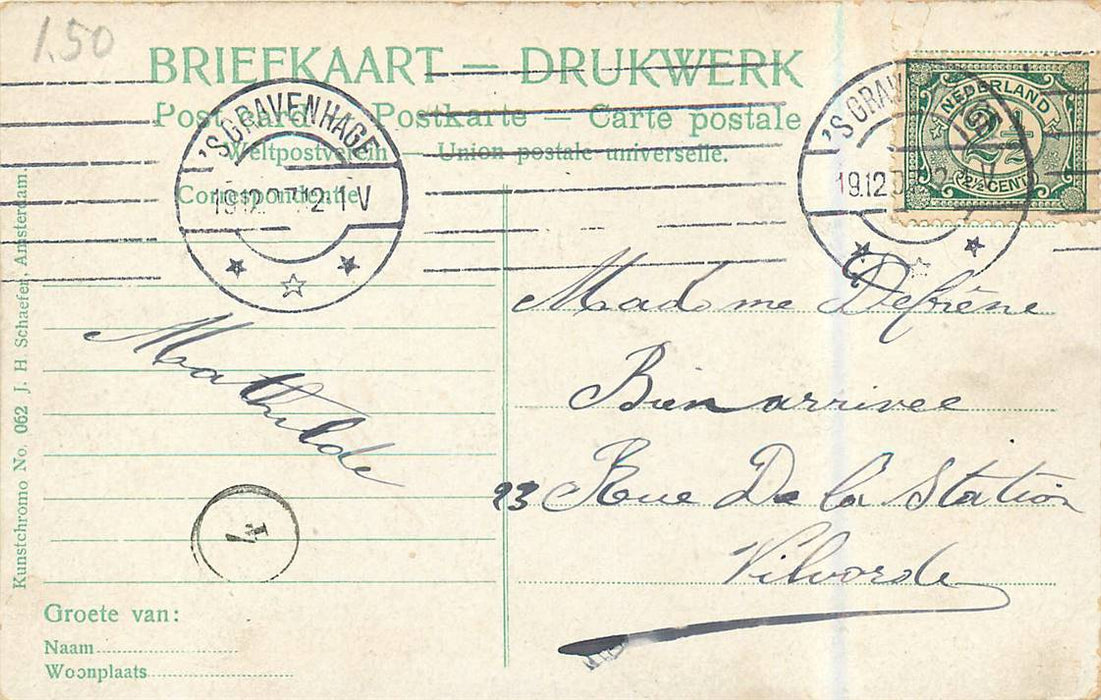 1.50
BRIEFKAART — DRUKWERK
Post card — Postkarte — Carte postale
Weltpostverein — Union postale universelle.
Correspondentie
'S GRAVENHAGE
19.12.07 12-1 V
'S GRAV
19.12
V
NEDERLAND
2½
2½ CENT
Mathilde
4
Madame Defrène
Bien arrivee
23 Rue De la Station
Vilvorde
Groete van:
Naam
Woonplaats
Kunstchromo No. 062 J. H. Schaefer, Amsterdam.